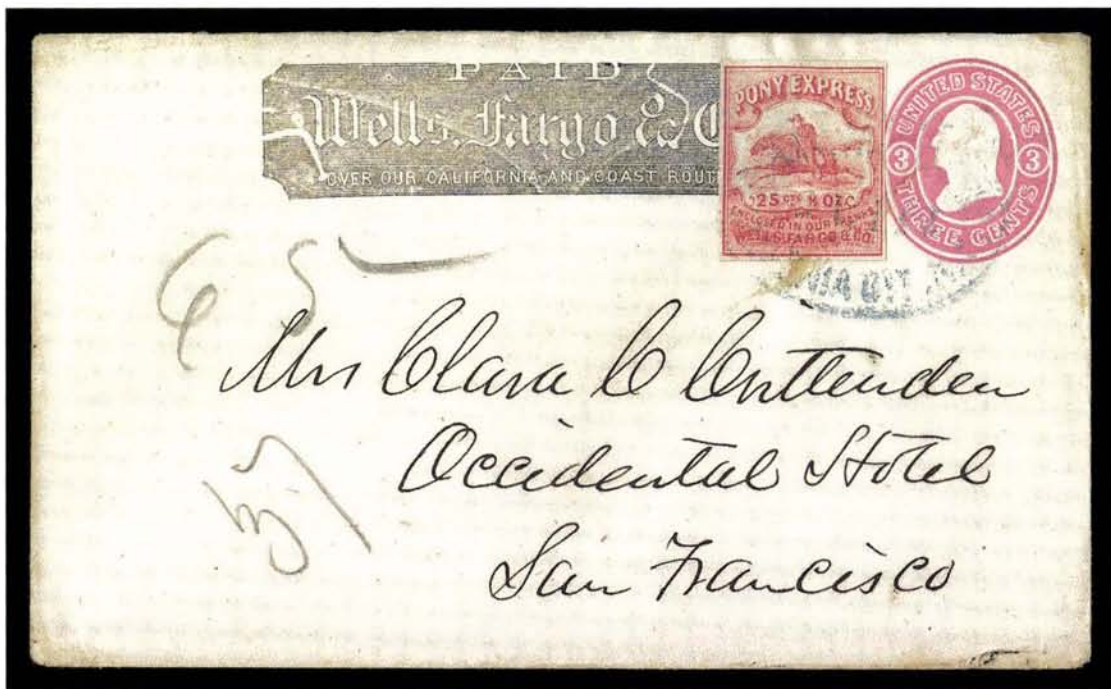 PAID
Wells, Fargo & C
OVER OUR CALIFORNIA AND COAST ROUT
PONY EXPRESS
25 CTS ½ OZ
ENCLOSED IN OUR FRANKS
WELLS, FARGO & CO.
UNITED STATES
3 3
THREE CENTS
VIA CITY
Mrs Clara C Crittenden
Occidental Hotel
San Francisco